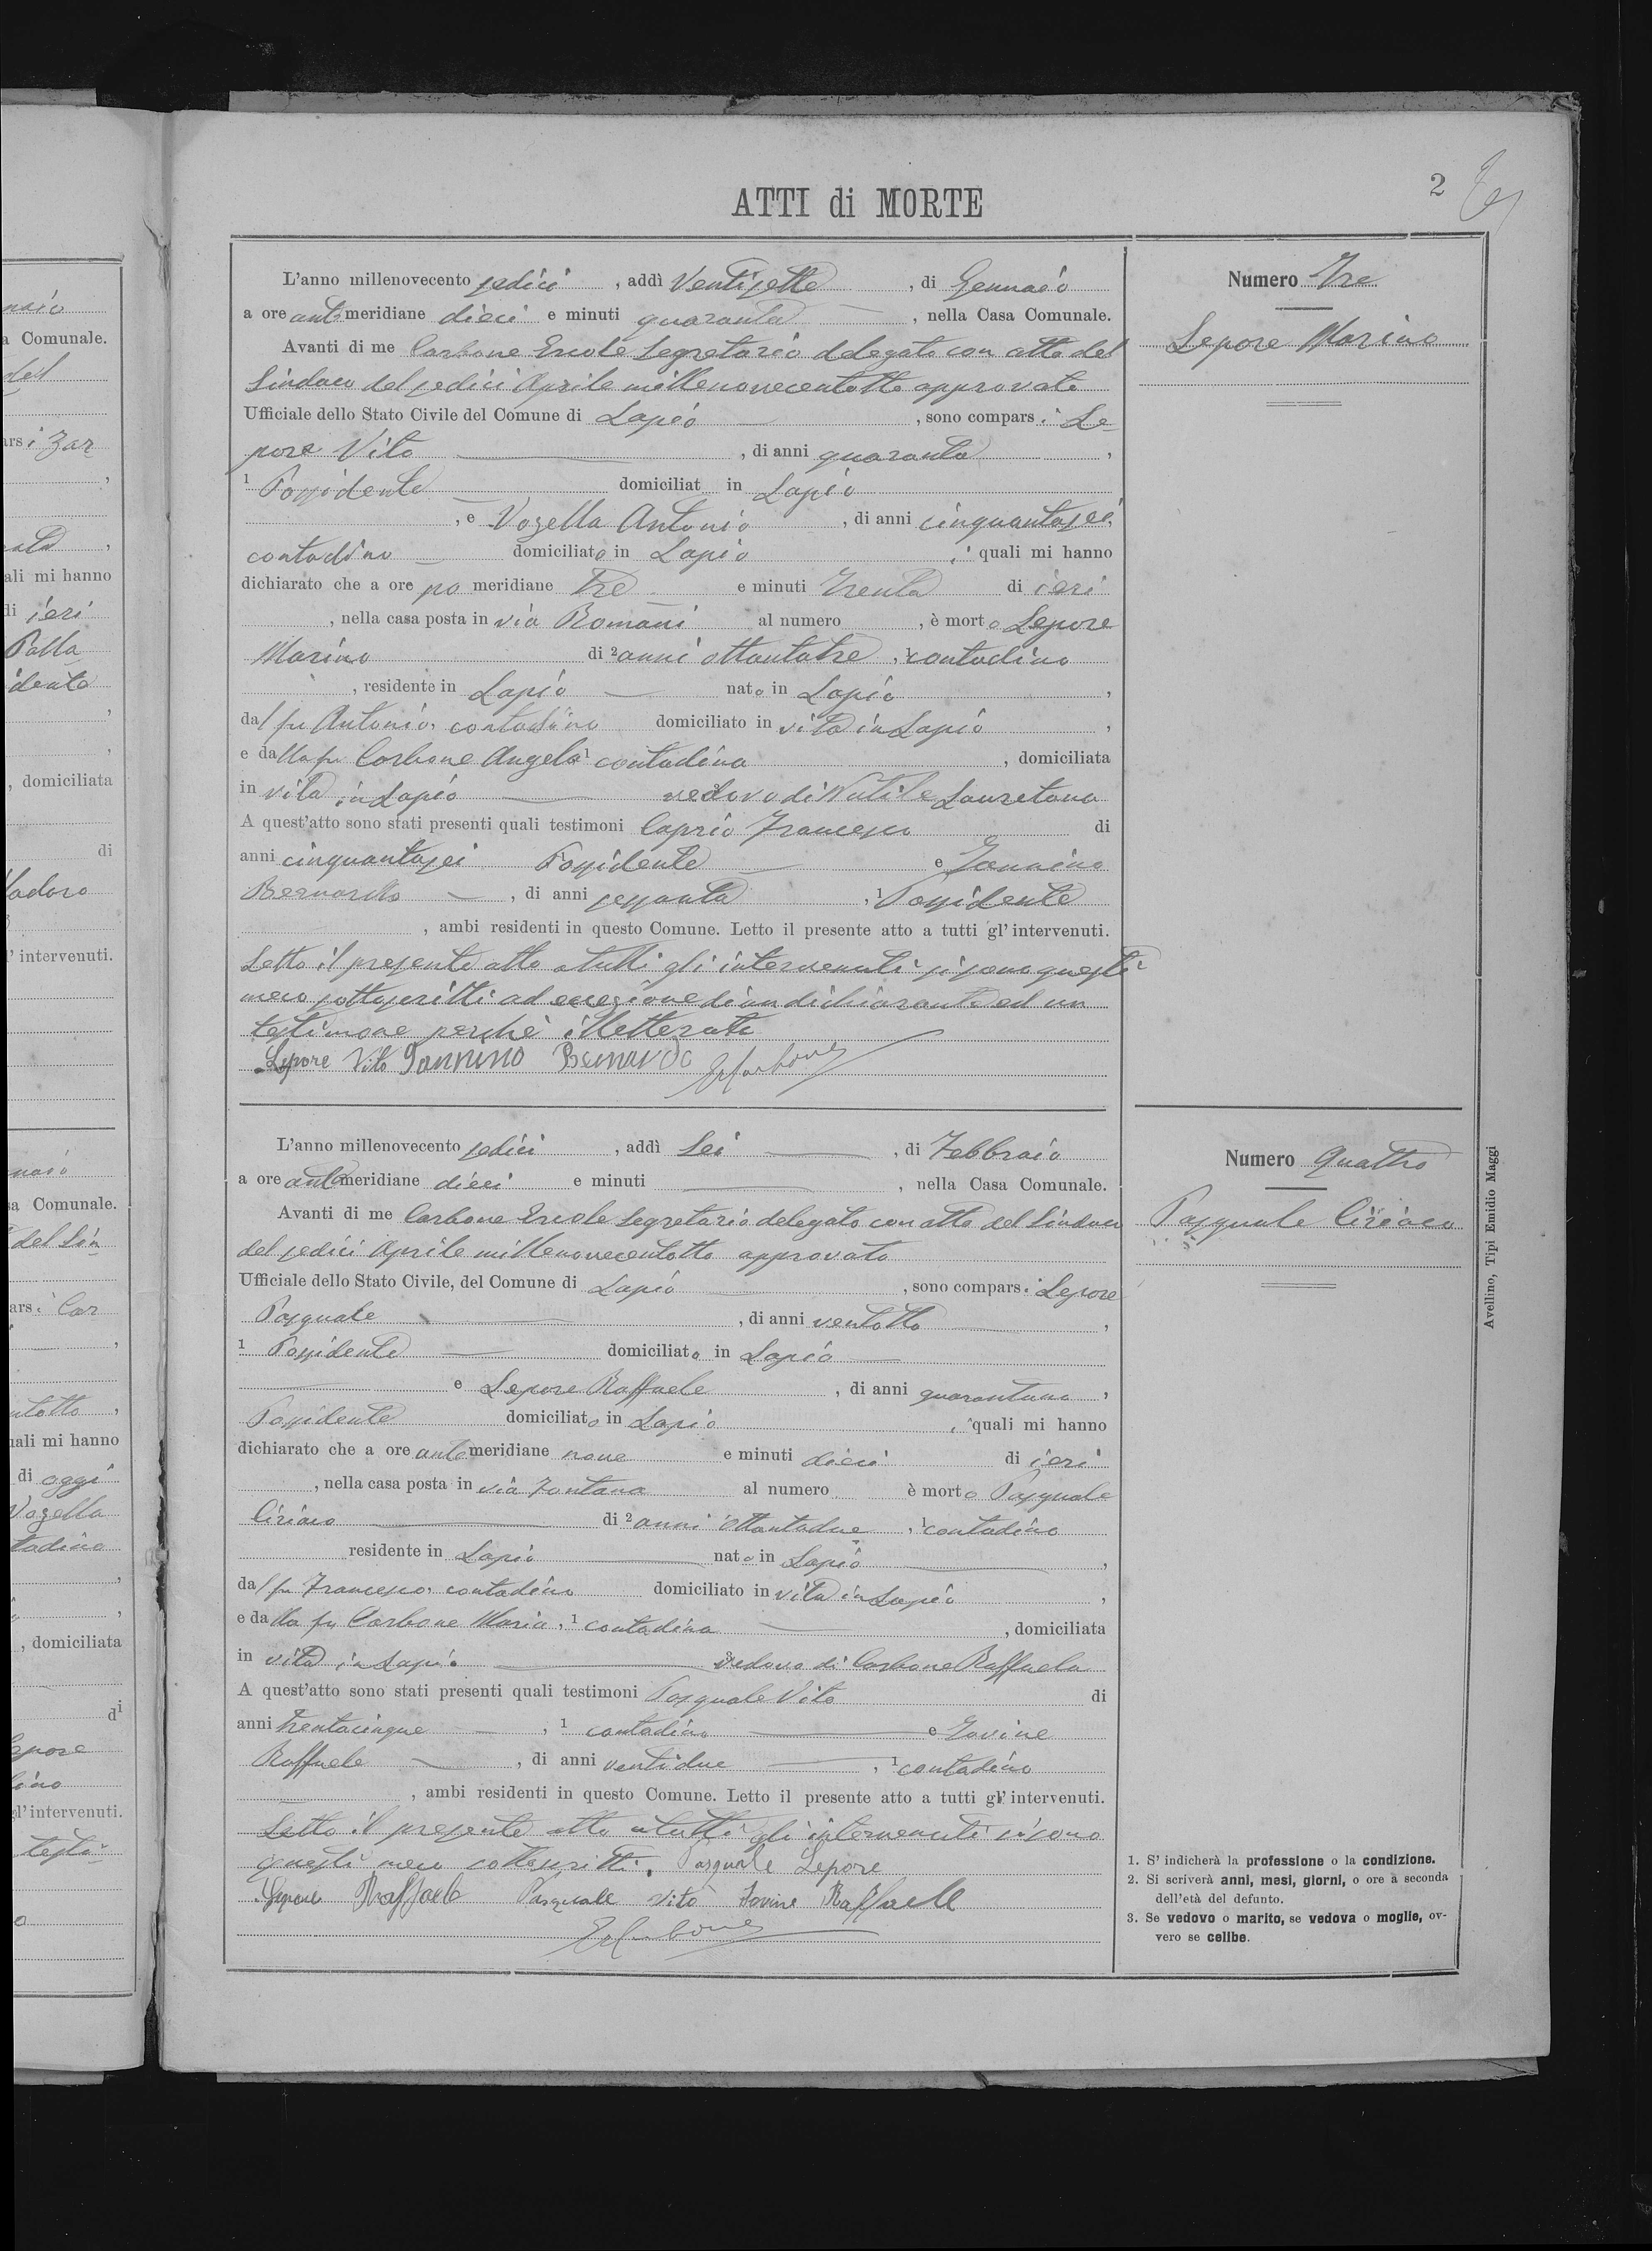 ATTI di MORTE
2
L'anno millenovecento sedici, addì Ventisette, di Gennaio
a ore antimeridiane dieci e minuti quaranta, nella Casa Comunale.
Avanti di me Carbone Ercole Segretario delegato con atto del
Sindaco del sedici Aprile millenovecentotto approvato
Ufficiale dello Stato Civile del Comune di Lapio, sono comparsi Le-
pore Vito, di anni quaranta,
1 Possidente domiciliat in Lapio
, e Vozella Antonio, di anni cinquantasei,
contadino domiciliato in Lapio, i quali mi hanno
dichiarato che a ore po meridiane tre e minuti trenta di ieri
, nella casa posta in via Romani al numero , è morto Lepore
Marino di 2 anni ottantatre, 1 contadino
, residente in Lapio nato in Lapio,
dal fu Antonio, contadino domiciliato in vita in Lapio,
e dalla fu Carbone Angela 1 contadina, domiciliata
in vita in Lapio vedovo di Nutile Lauretana
A quest'atto sono stati presenti quali testimoni Caprio Francesco di
anni cinquantasei Possidente e Iannino
Bernardo, di anni sessanta, 1 Possidente
, ambi residenti in questo Comune. Letto il presente atto a tutti gl'intervenuti.
Letto il presente atto a tutti gli intervenuti si sono questi
meco sottoscritti ad eccezione di un dichiarante ed un
testimone perchè illetterati
Lepore Vito Iannino Bernardo ECarbone
Numero Tre
Lepore Marino
L'anno millenovecento sedici, addì Sei, di Febbraio
a ore antimeridiane dieci e minuti , nella Casa Comunale.
Avanti di me Carbone Ercole Segretario delegato con atto del Sindaco
del sedici Aprile millenovecentotto approvato
Ufficiale dello Stato Civile, del Comune di Lapio, sono comparsi Lepore
Pasquale, di anni ventotto,
1 Possidente domiciliato in Lapio
e Lepore Raffaele, di anni quarantuno,
Possidente domiciliato in Lapio, i quali mi hanno
dichiarato che a ore antimeridiane nove e minuti dieci di ieri
, nella casa posta in via Fontana al numero è morto Pasquale
Ciriaco di 2 anni ottantadue, 1 contadino
residente in Lapio nato in Lapio,
dal fu Francesco, contadino domiciliato in vita in Lapio,
e dalla fu Carbone Maria, 1 contadina, domiciliata
in vita in Lapio vedovo di Carbone Raffaela
A quest'atto sono stati presenti quali testimoni Pasquale Vito di
anni trentacinque, 1 contadino e Iovine
Raffaele, di anni ventidue, 1 contadino
, ambi residenti in questo Comune. Letto il presente atto a tutti gl'intervenuti.
Letto il presente atto a tutti gli intervenuti si sono
questi meco sottoscritti. Pasquale Lepore
Lepore Raffaele Pasquale Vito Iovine Raffaele
ECarbone
Numero Quattro
Pasquale Ciriaco
Avellino, Tipi Emidio Maggi
1. S'indicherà la professione o la condizione.
2. Si scriverà anni, mesi, giorni, o ore a seconda
dell'età del defunto.
3. Se vedovo o marito, se vedova o moglie, ov-
vero se celibe.